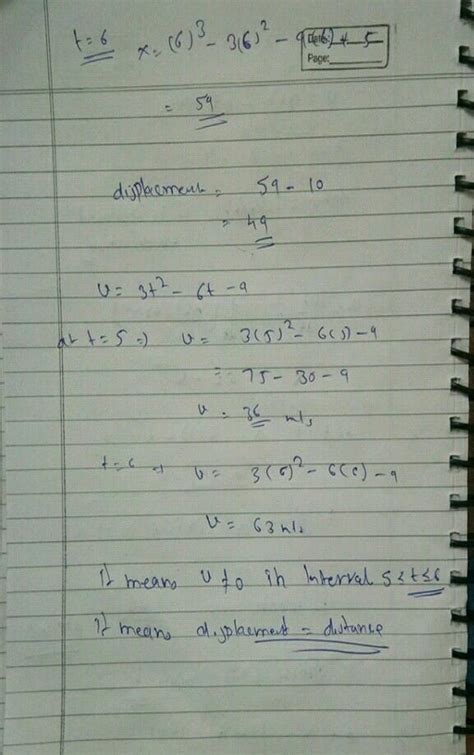 t=6 x = (6)³ - 3(6)² - 9(6) + 5
Date:
Page:
= 59
displacement = 59 - 10
= 49
v = 3t² - 6t - 9
at t = 5 => v = 3(5)² - 6(5) - 9
= 75 - 30 - 9
v = 36 m/s
t=6 => v = 3(6)² - 6(6) - 9
v = 63 m/s
It means v≠0 in Interval 5≤t≤6
It means displacement = distance